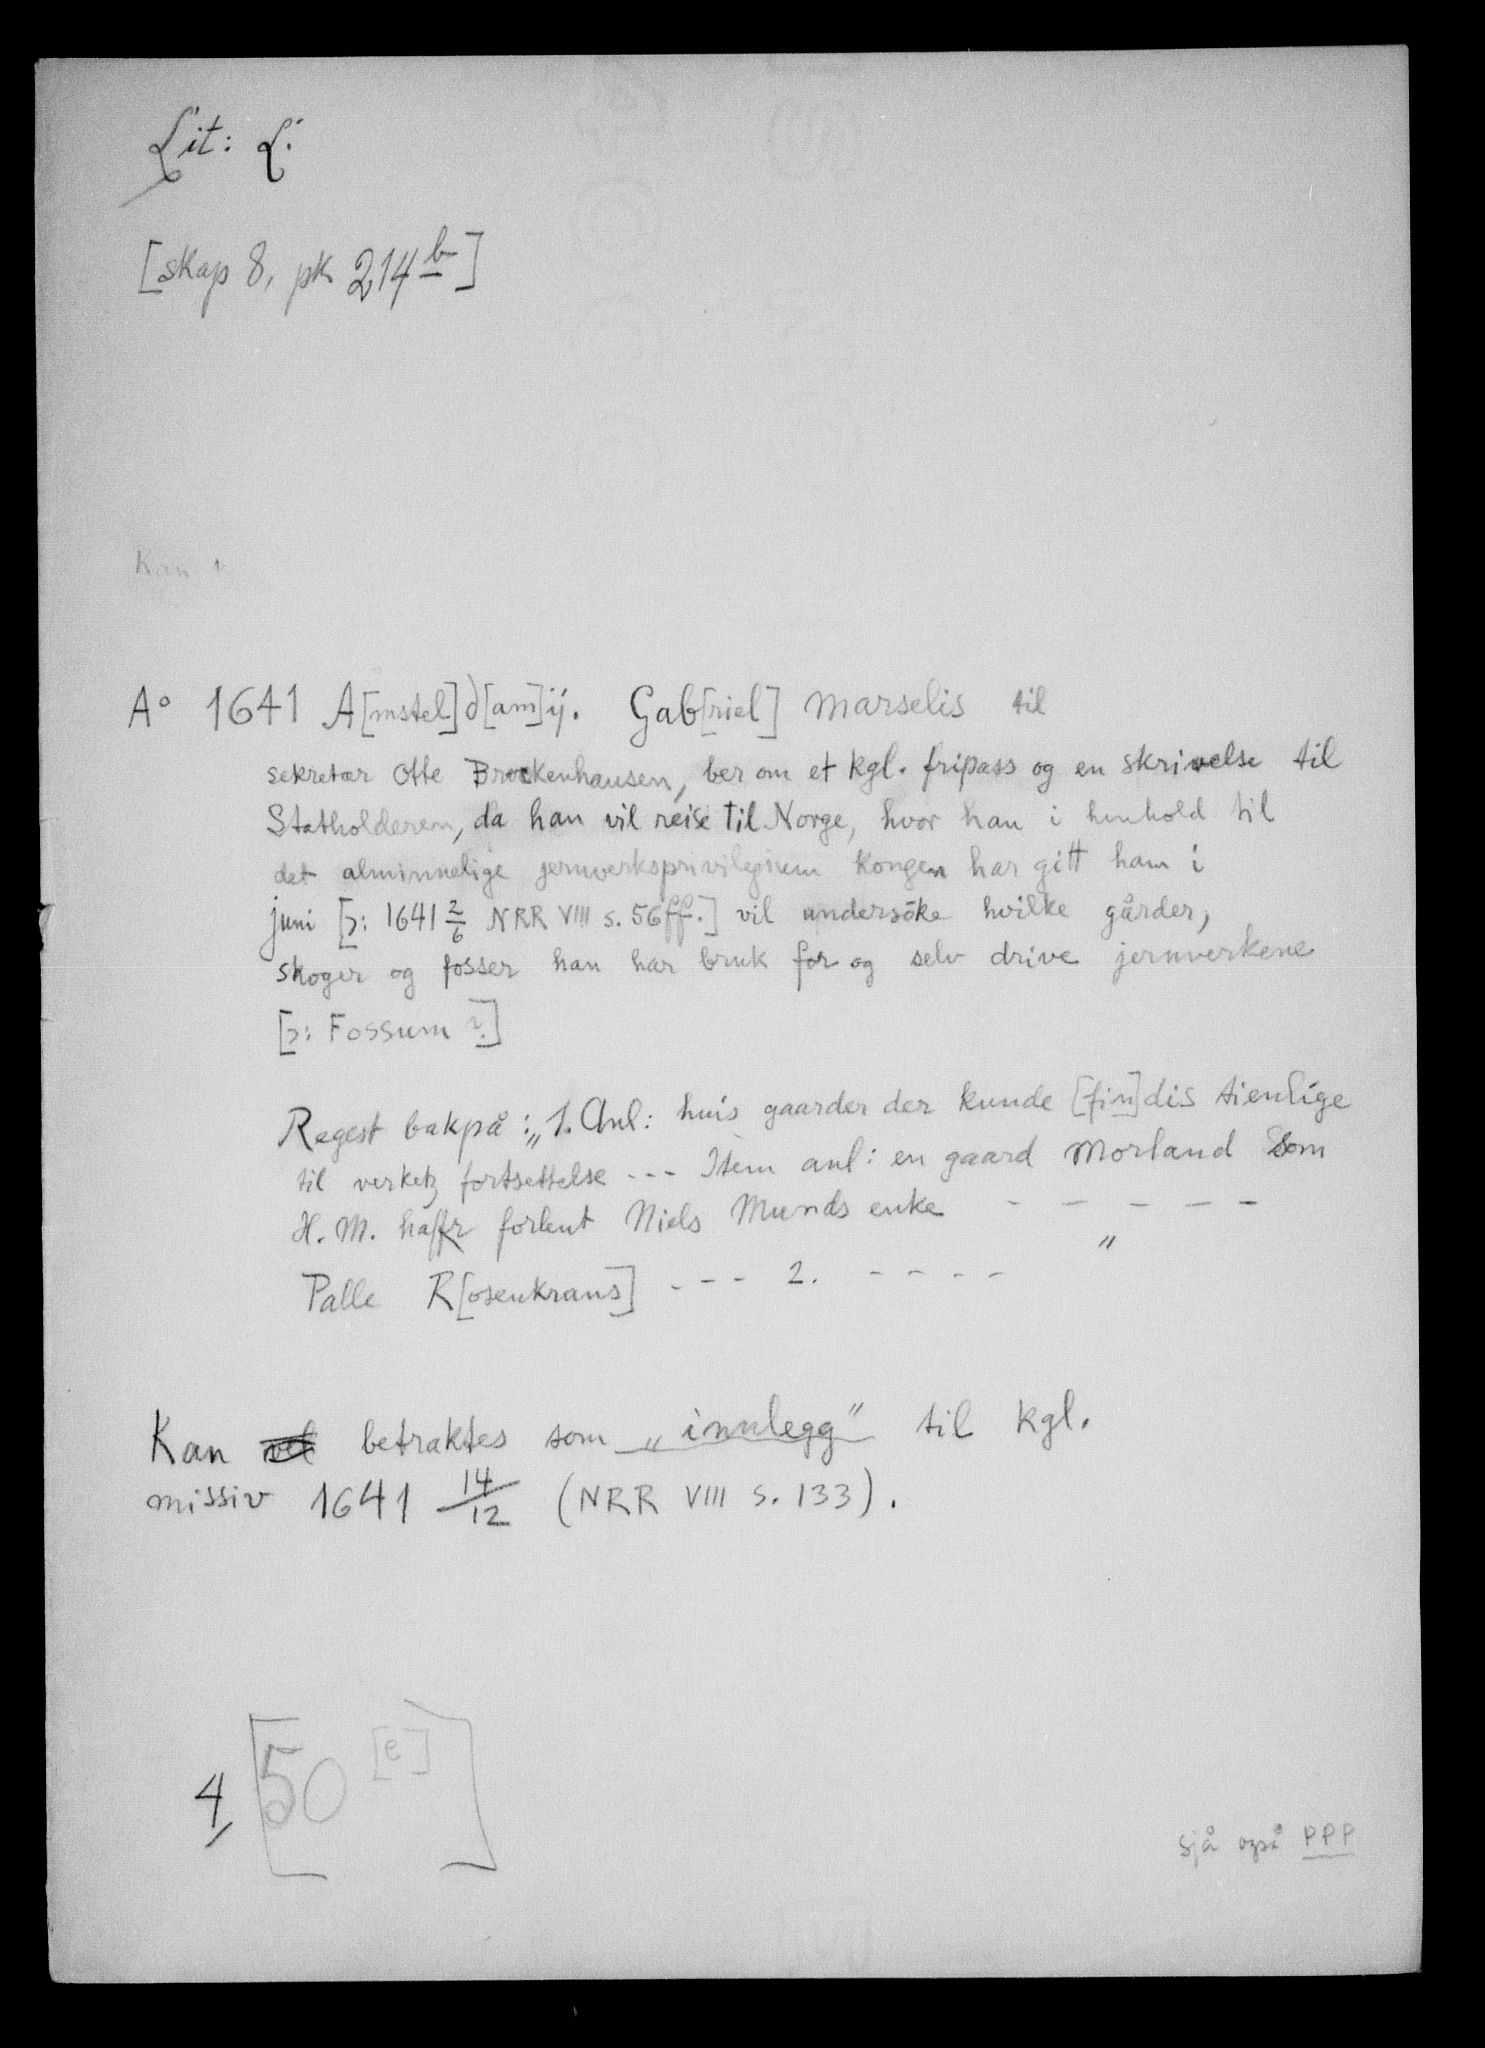 Lit: L:
[skap 8, pk 214 b]
Kan
A° 1641 A[mstel]d[am]ij. Gab[riel] Marselis til
sekretær Otte Brockenhausen, ber om et kgl. fripass og en skrivelse til
Statholderen, da han vil reise til Norge, hvor han i henhold til
det alminnelige jernverksprivilegium kongen har gitt ham i
juni [ɔ: 1641 2/6 NRR VIII s. 56ff.] vil undersöke hvilke gårder,
skoger og fosser han har bruk for og selv drive jernverkene
[ɔ: Fossum ?]
Regest bakpå: „1. Anl: huis gaarder der kunde [fin]dis tienlige
til verketz fortsettelse --- Item anl: en gaard Morland som
H. M. haffr forlent Niels Munds enke - - - - -
Palle R[osenkrans] --- 2. ---- "
Kan vel betraktes som „innlegg" til kgl.
missiv 1641 14/12 (NRR VIII s. 133).
4, [50 [e]]
sjå også PPP